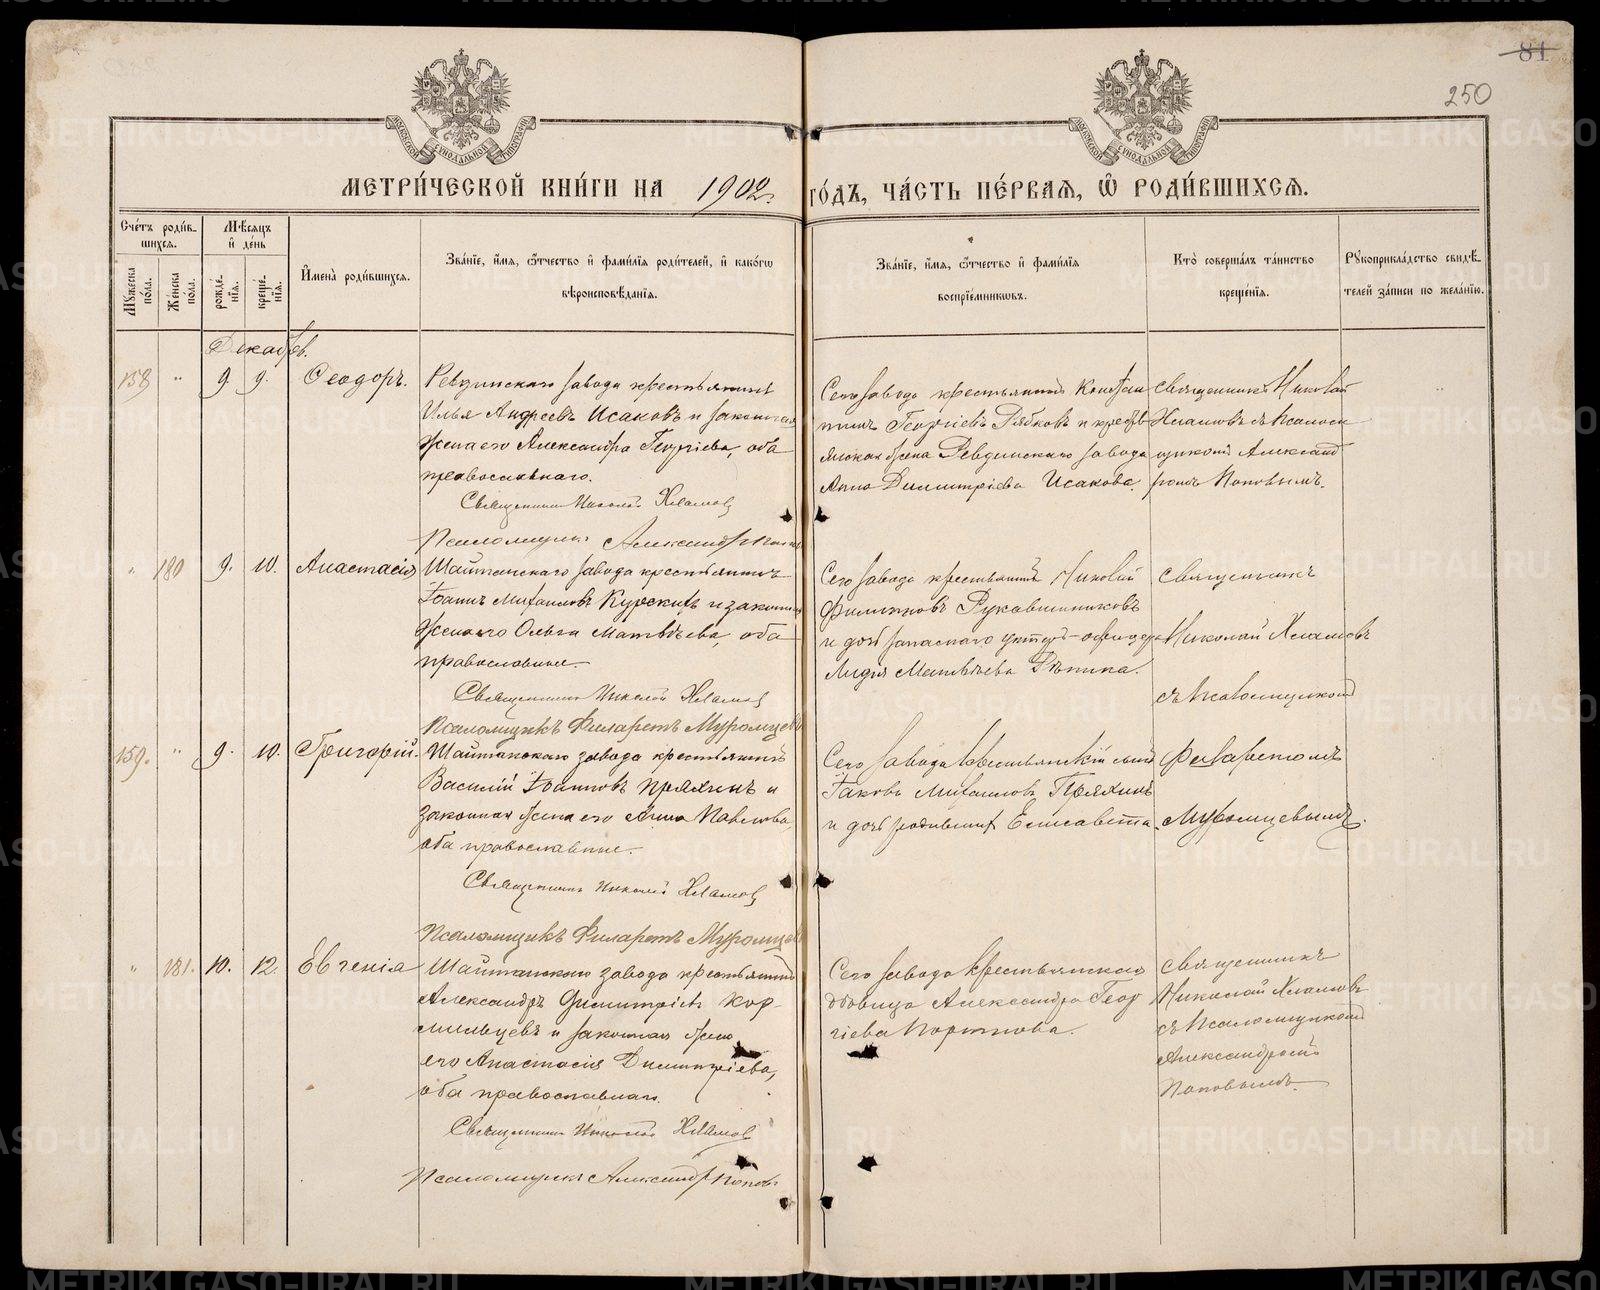 84
250
МЕТРИ́ЧЕСКОЙ КНИ́ГИ НА 1902 г. ГО́ДЪ, ЧА́СТЬ ПЕ́РВАЯ, Ѡ РОДИ́ВШИХСЯ.
Сче́тъ роди́вшихся.
Мѣ́сяцъ и де́нь
Му́жеска по́ла.
Же́нска по́ла.
рожде́нія.
креще́нія.
Имена̀ роди́вшихся.
Зва́ніе, и́мя, ѻ҆́тчество и фами́лія роди́телей, и како́гѡ
вѣроисповѣ́данія.
Зва́ніе, и́мя, ѻ҆́тчество и фами́лія
воспріе́мникѡвъ.
Кто̀ соверша́лъ та́инство
креще́нія.
Рукоприкла́дство свидѣ́-
телей за́писи по жела́нію.
Декабрь.
158 " 9 9. Ѳеодоръ.
Ревдинскаго завода крестьянинъ
Илья Андреевъ Исаковъ и законная
жена его Александра Георгіева, оба
православнаго.
Священникъ Николай Хламовъ
Псаломщикъ Александръ Поповъ
Сего завода крестьянинъ Констан
тинъ Георгіевъ Рябковъ и кресть
янская жена Ревдинскаго завода
Анна Димитріева Исакова.
Священникъ Николай
Хламовъ съ Псаломщ
щикомъ Александ
ромъ Поповымъ.
" 180 9. 10. Анастасія
Шайтанскаго завода крестьянинъ
Іоаннъ Михаиловъ Курскихъ и законная
жена его Ольга Матвѣева, оба
православные.
Священникъ Николай Хламовъ
Псаломщикъ Филаретъ Муромцевъ
Сего завода крестьянинъ Николай
Филипповъ Рукавишниковъ
и дочь запаснаго унтеръ-офицера
Лидія Матвѣева Рѣпина.
Священникъ
Николай Хламовъ
съ Псаломщикомъ
159. " 9. 10. Григорій.
Шайтанскаго завода крестьянинъ
Василій Іоанновъ Пряхинъ и
законная жена его Анна Павлова,
оба православные.
Священникъ Николай Хламовъ
Псаломщикъ Филаретъ Муромцевъ
Сего завода крестьянскій сынъ
Іаковъ Михаиловъ Пряхинъ
и дочь родившихъ Елисавета.
Филаретомъ
Муромцевымъ.
" 181. 10. 12. Евгенія
Шайтанскаго завода крестьянинъ
Александръ Димитріевъ Кор-
мильцевъ и законная жена
его Анастасія Димитріева,
оба православные.
Священникъ Николай Хламовъ
Псаломщикъ Александръ Поповъ
Сего завода крестьянская
вдовица Александра Геор
гіева Портнова.
Священникъ
Николай Хламовъ
съ Псаломщикомъ
Александромъ
Поповымъ.